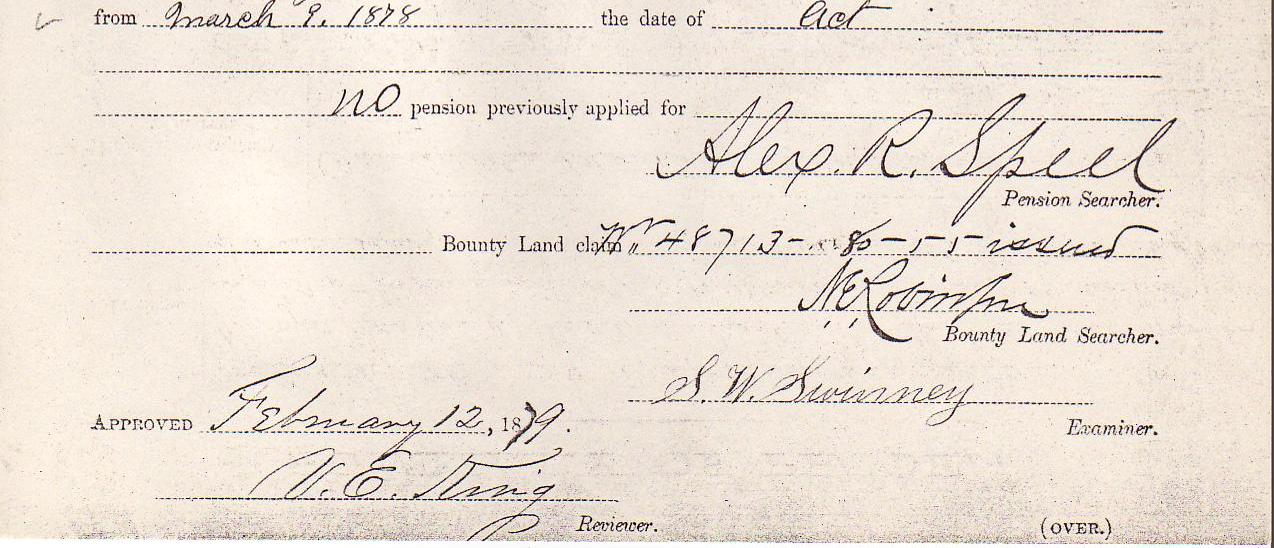 from March 9, 1878 the date of Act
no pension previously applied for
Alex. R. Speel
Pension Searcher.
Bounty Land claim Wt 48713- 80-55 issued
N E Robinson
Bounty Land Searcher.
S. W. Swinney
Examiner.
APPROVED February 12, 1879.
V. E. King
Reviewer.
(OVER.)